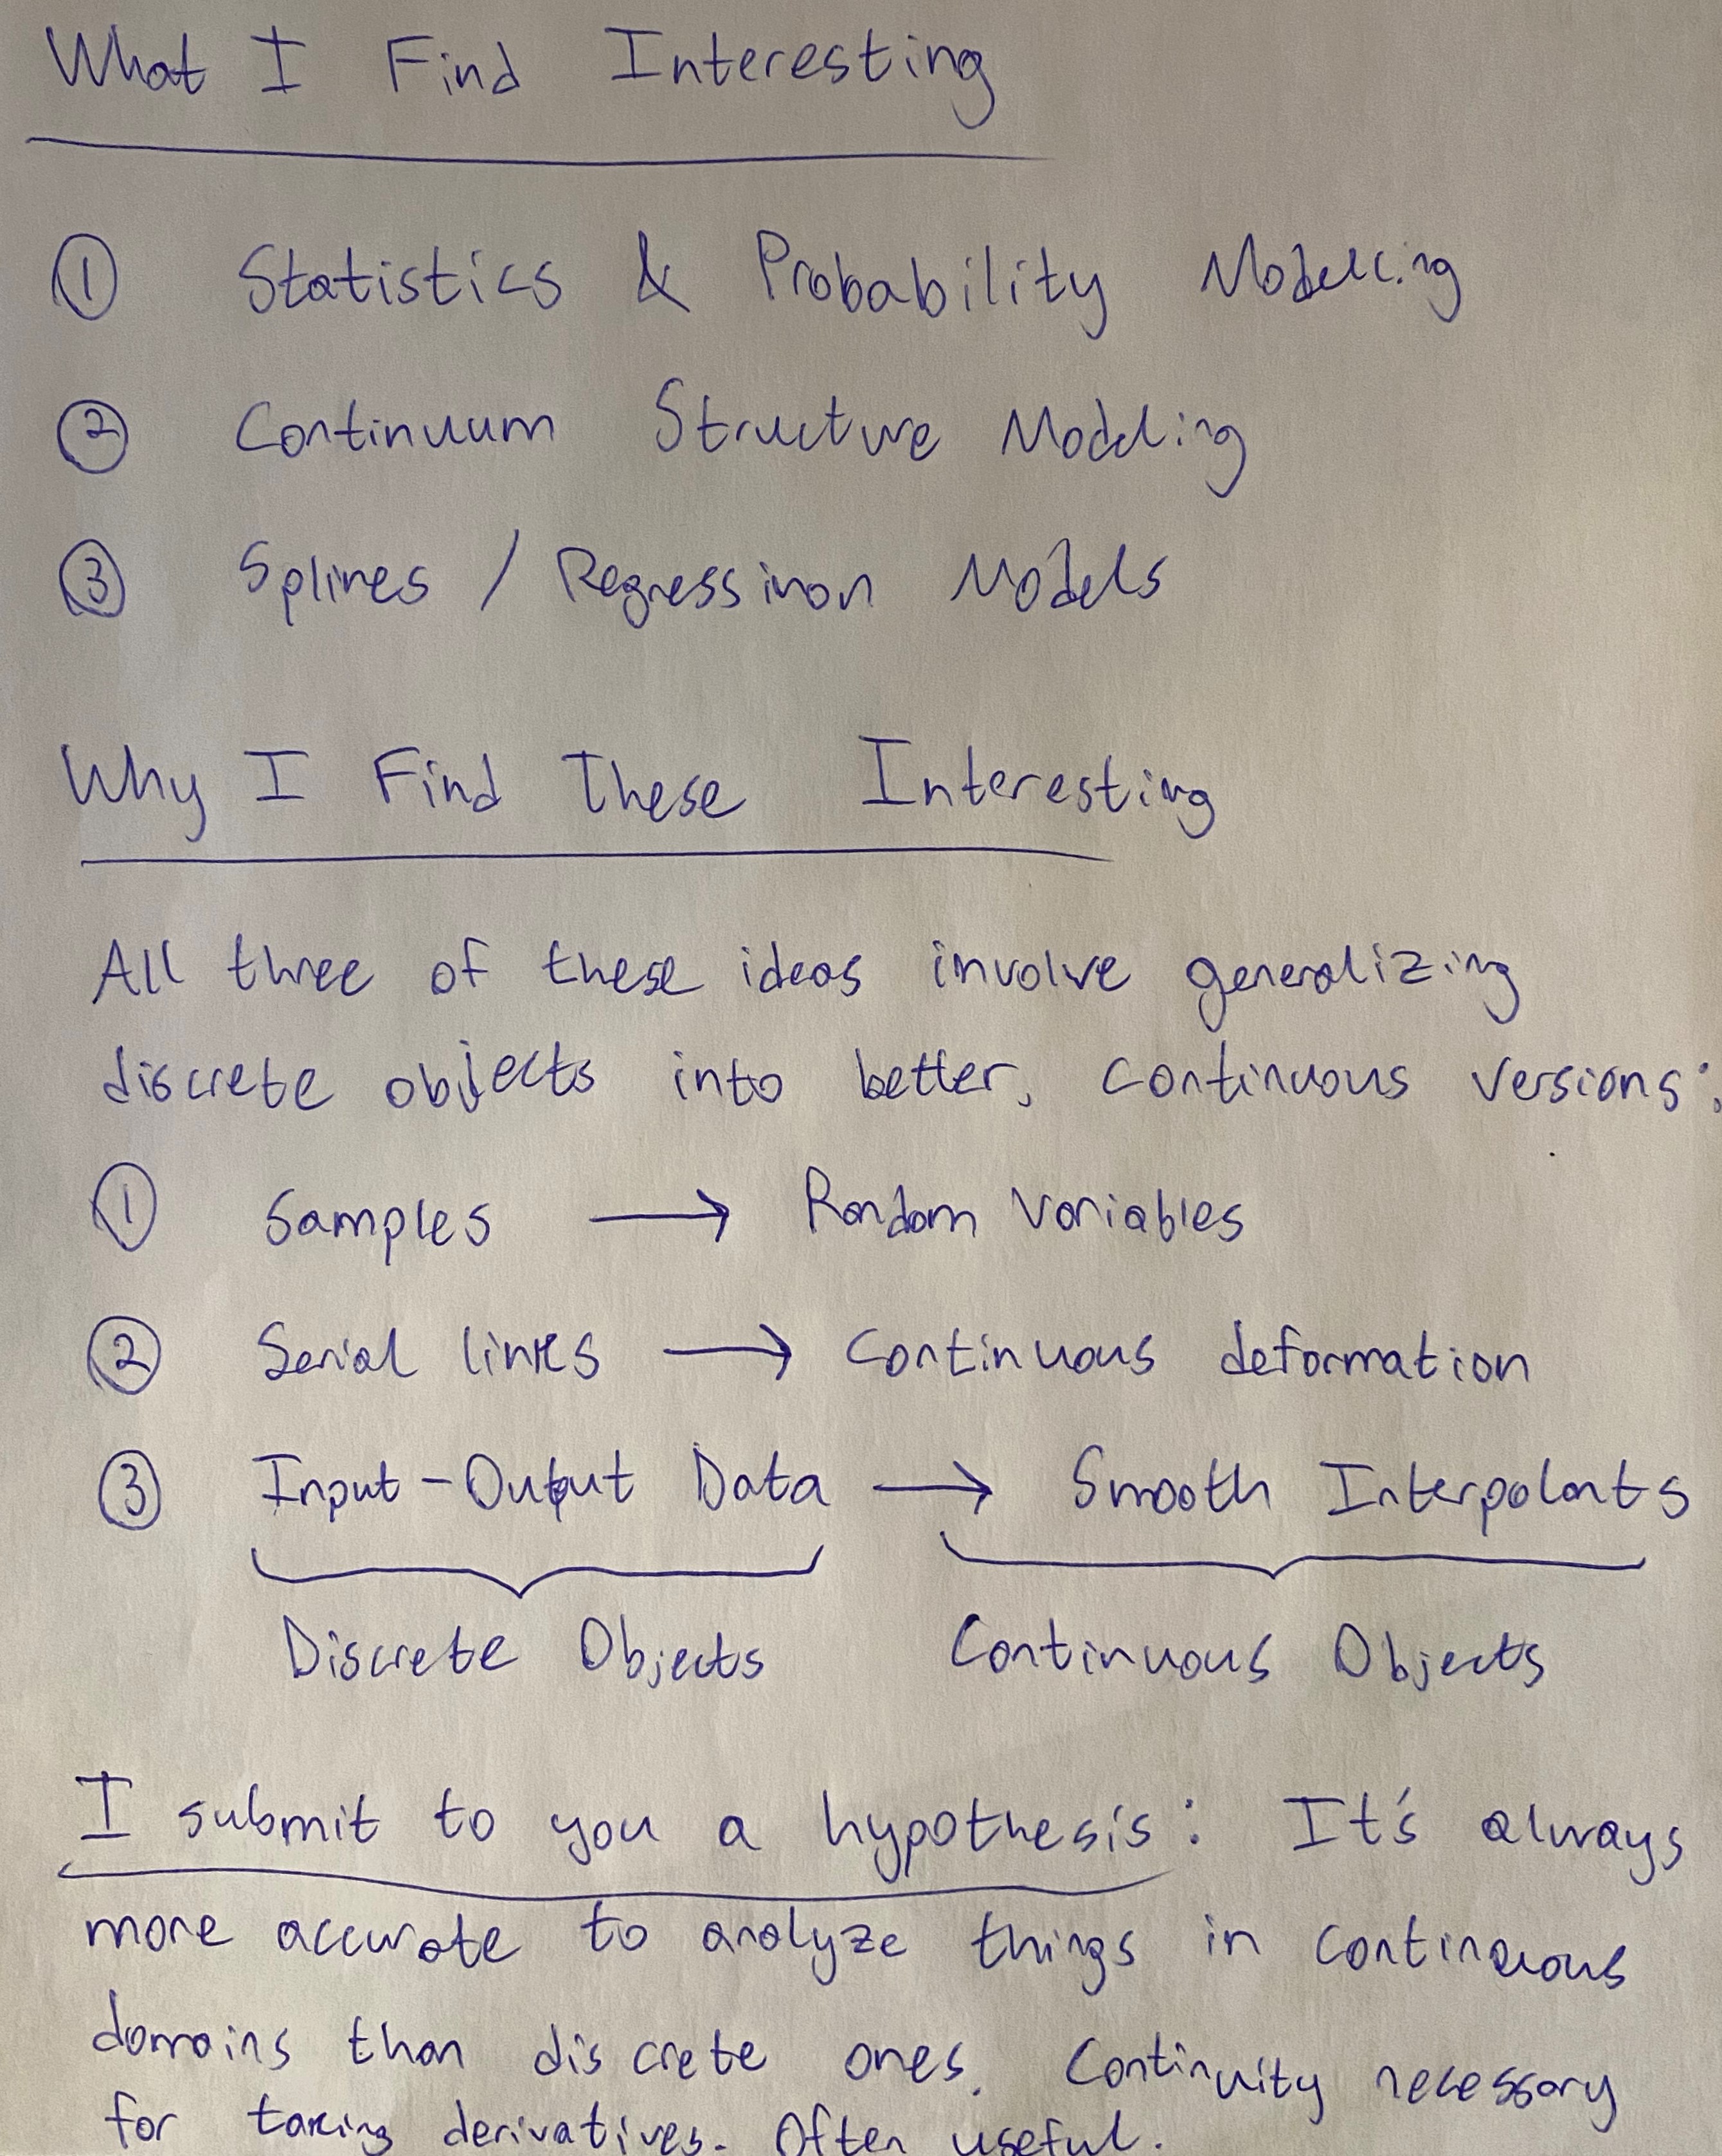 What I Find Interesting
① Statistics & Probability Modeling
② Continuum Structure Modeling
③ Splines / Regressinon Models
Why I Find These Interesting
All three of these ideas involve generalizing
discrete objects into better, continuous versions:
① Samples → Random Variables
② Serial links → Continuous deformation
③ Input-Output Data → Smooth Interpolants
Discrete Objects Continuous Objects
I submit to you a hypothesis: It's always
more accurate to analyze things in continuous
domains than discrete ones. Continuity necessary
for taking derivatives. Often useful.